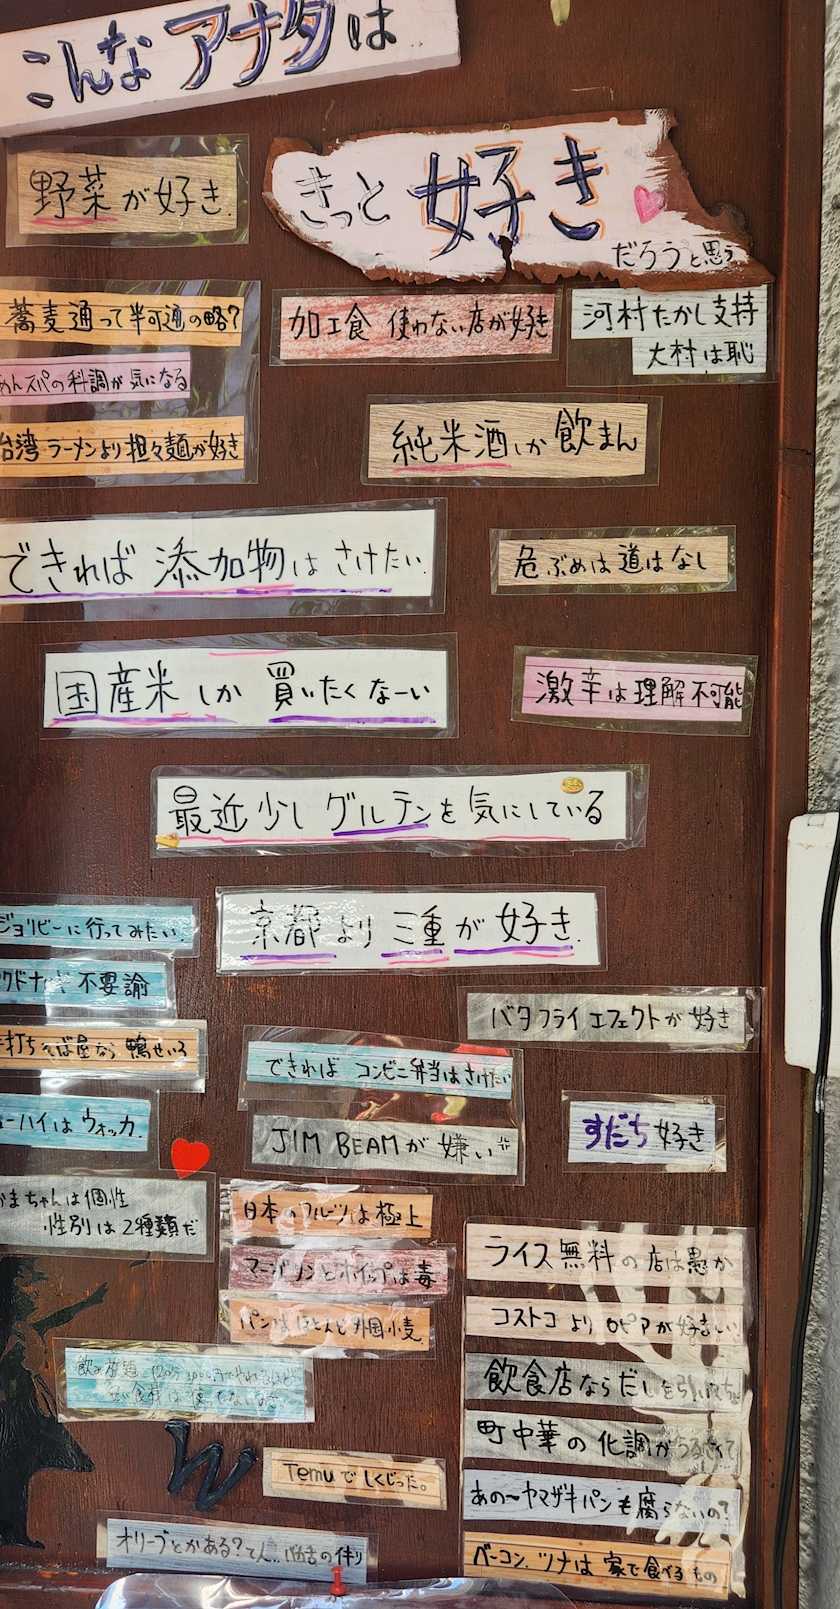 こんなアナタは
きっと好き
だろうと思う
野菜が好き.
蕎麦通って半可通の略?
めんスパの科調が気になる
台湾ラーメンより担々麺が好き
加工食 使わない店が好き
河村たかし支持
大村は恥
純米酒しか飲まん
できれば添加物はさけたい.
危ぶめは道はなし
国産米しか買いたくなーい
激辛は理解不可能
最近少しグルテンを気にしている
ジョリビーに行ってみたい.
京都より三重が好き.
不要諭
打ちそば屋なら 鴨せいろ
ーハイはウォッカ.
バタフライエフェクトが好き
できれば コンビニ弁当はさけたい
JIM BEAMが嫌い
すだち好き
まちゃんは個性
性別は2種類だ
日本のフルーツは極上
マーガリンとホイップは毒
パンはほとんど外国小麦
飲み放題
ライス無料の店は愚か
コストコよりロピアが好き
飲食店ならだしを引い
町中華の化調が
W
Temuでしくじった。
あの〜ヤマザキパンも腐らないの?
オリーブとかある?
ベーコン.ツナは家で食べるもの